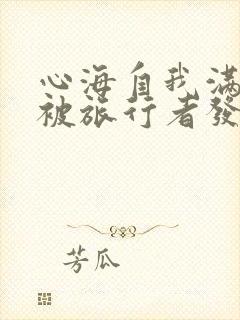 心海自我滿
被旅行者發
芳瓜